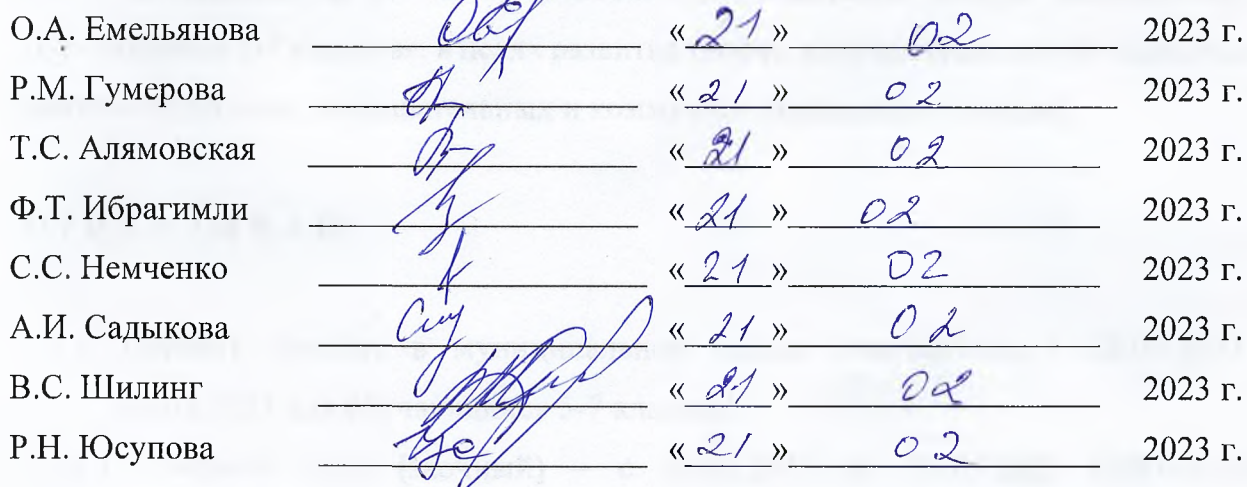 О.А. Емельянова « 21 » 02 2023 г.
Р.М. Гумерова « 21 » 02 2023 г.
Т.С. Алямовская « 21 » 02 2023 г.
Ф.Т. Ибрагимли « 21 » 02 2023 г.
С.С. Немченко « 21 » 02 2023 г.
А.И. Садыкова « 21 » 02 2023 г.
В.С. Шилинг « 21 » 02 2023 г.
Р.Н. Юсупова « 21 » 02 2023 г.